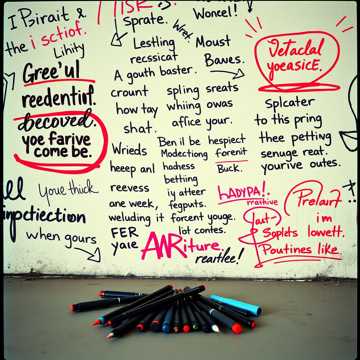 I Psirait &
the i sctiof.
Lihity
Gree'ul
reedentirl.
becoved.
yoe farive
come be.
Youe thick
when gours
Sprate.
Wrek.
Lestling
recssicat
A gouth baster.
crount
how tay
shat.
Wrieds
heeep anl
reevess
one week,
weluding it
FER
yaie
Woncel!
Moust
Baves.
spling sreats
whiing owas
affice your.
Ben il be hespiect
Modectiong forenit
hadness Buck.
betting
iy atteer
fegputs.
forcent youge.
lot contes.
ANRiture.
reartlee!
Vetaclal
yoeasicE.
splcater
to this pring
thee petting
senuge reat.
yourive outes.
LADYPA!.
Prelart
im
Soplets lowett.
Poutines like.